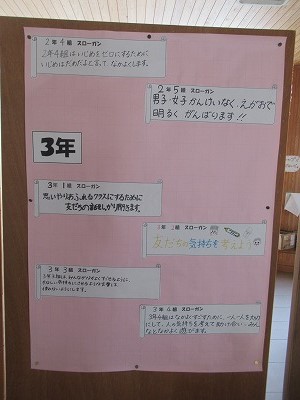 2年4組 スローガン
2年4組はいじめをゼロにするために、
いじめはだめだよと言って、なかよくします。
2年5組 スローガン
男子・女子かんけいなく、えがおで
明るく がんばります!!
3年
3年1組 スローガン
思いやりあふれるクラスにするために
友だちの話をしっかり聞きます。
3年2組 スローガン
友だちの気持ちを考えよう
3年3組 スローガン
3年4組 スローガン
3年4組はなかよくすごすために、一人一人を大切
にして、人の気持ちを考えて助け合い、みん
ななかよく遊びます。